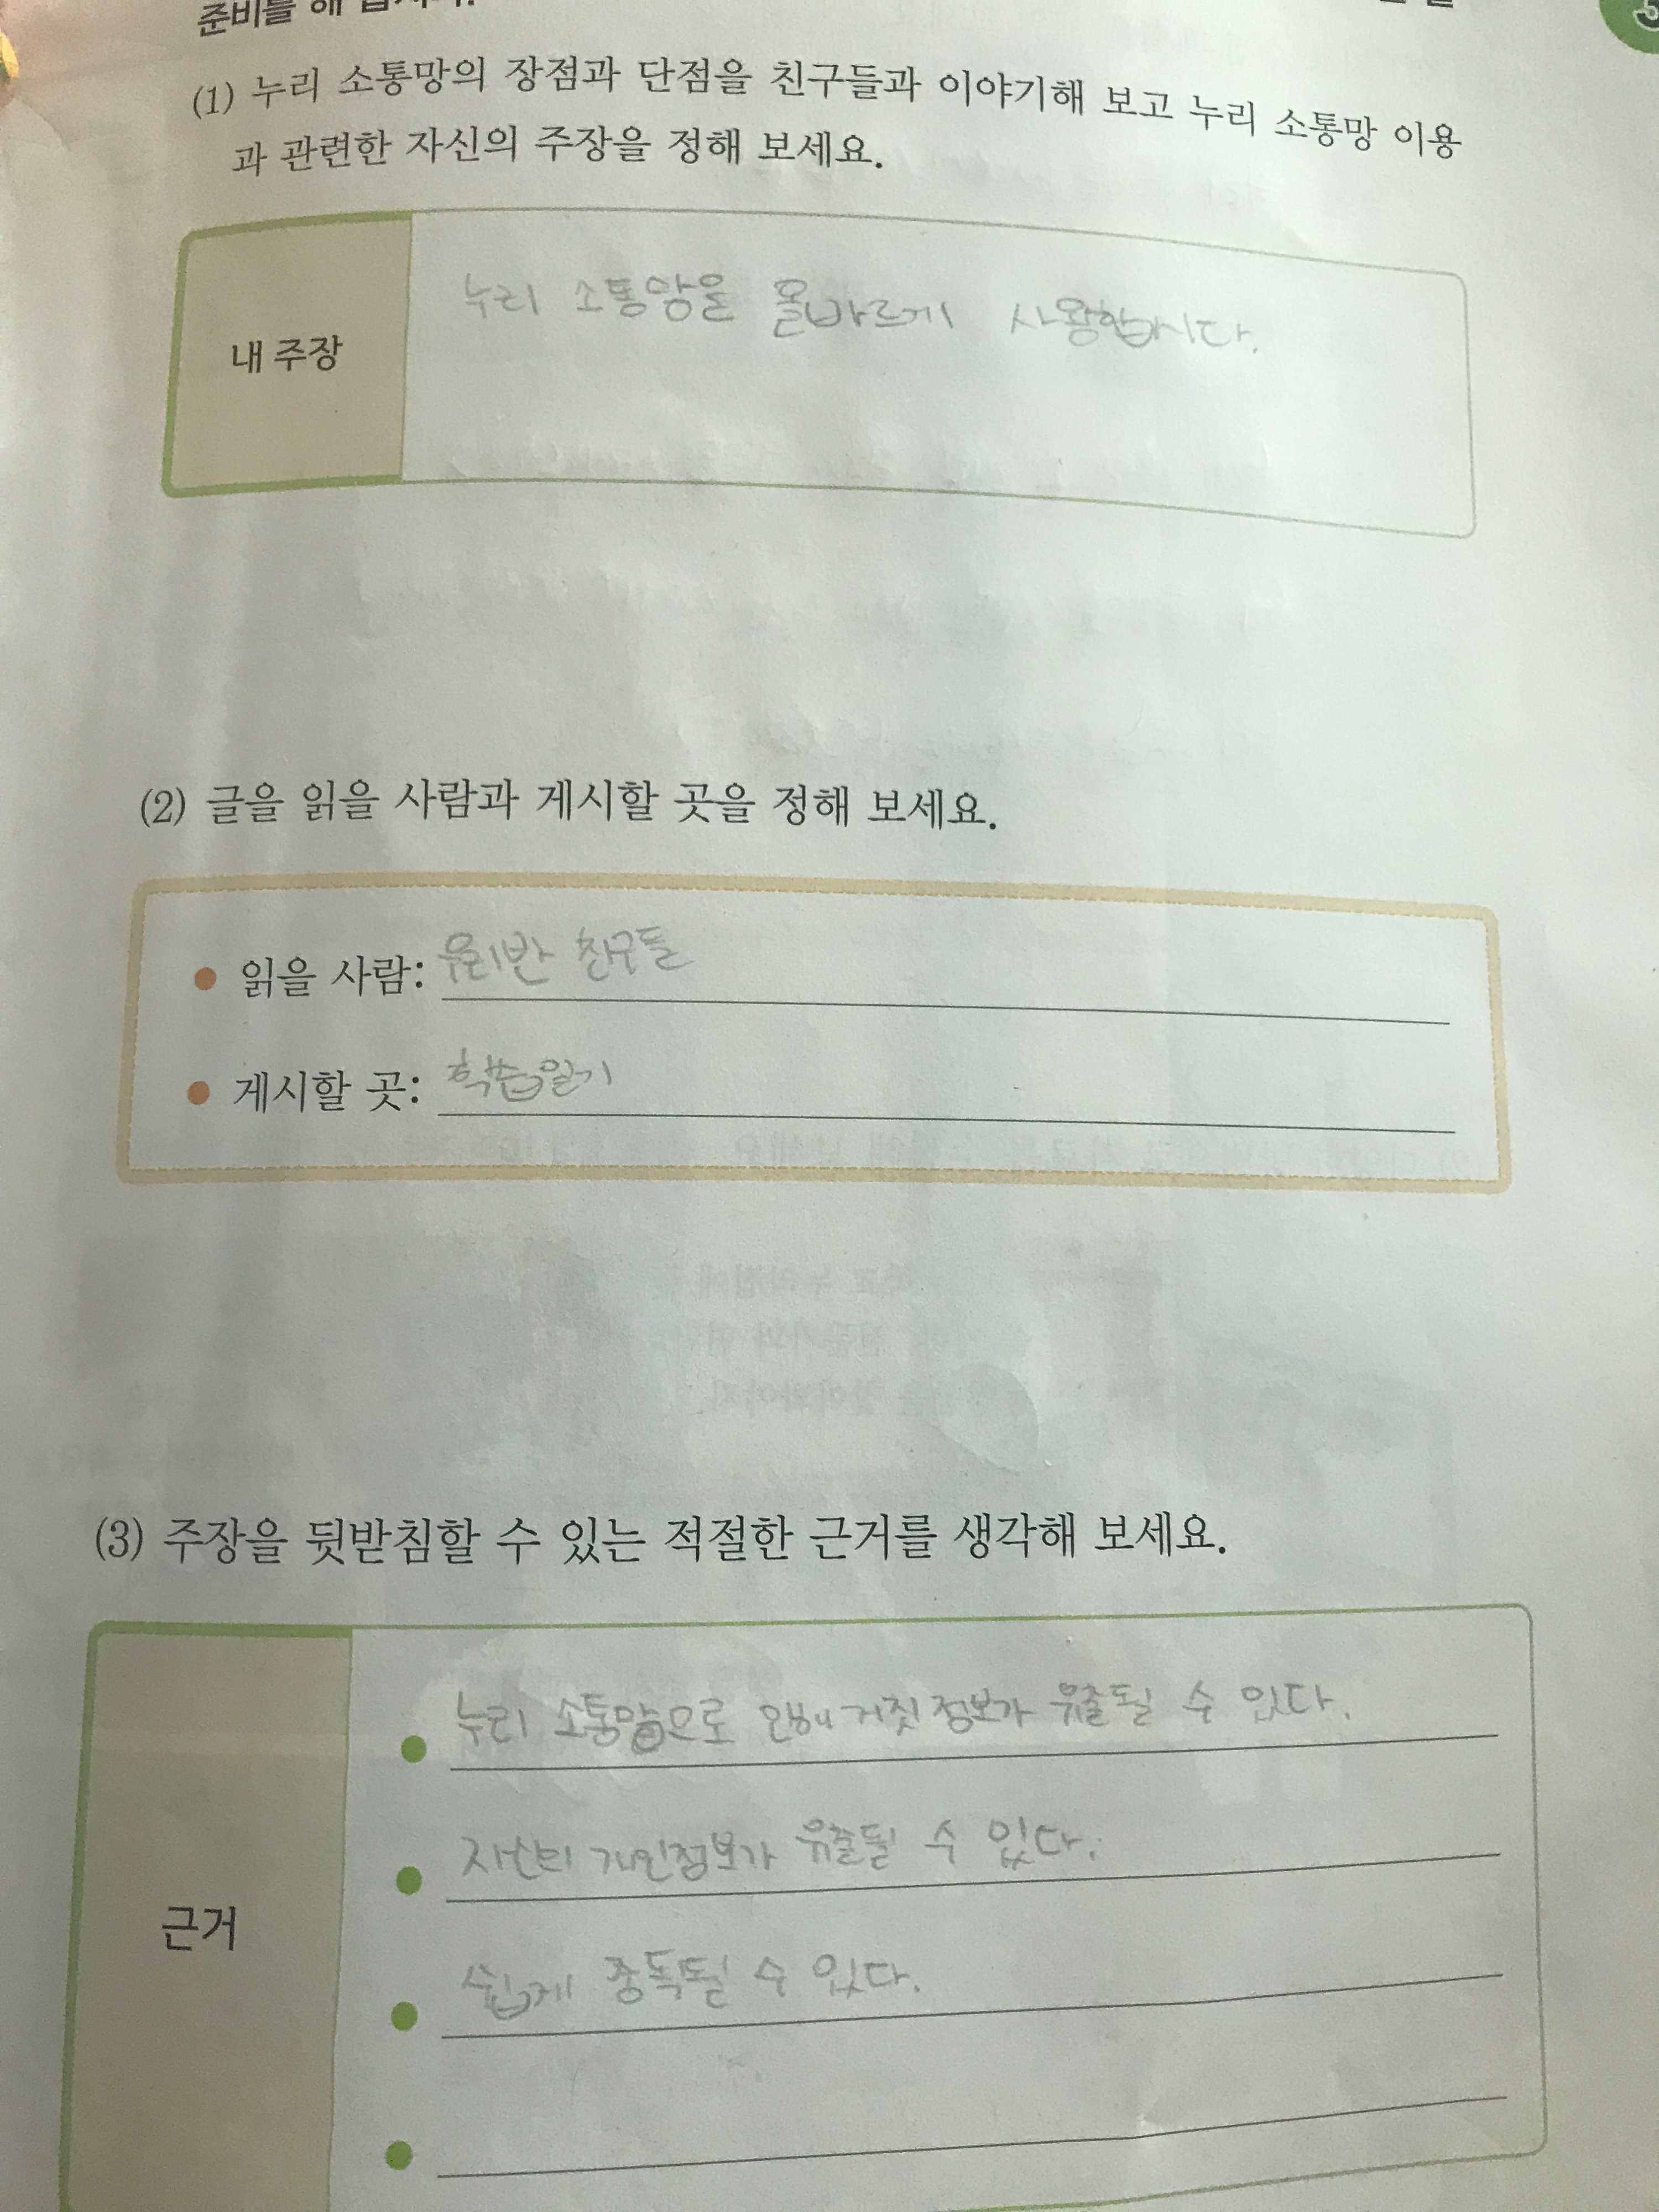 준비를 해 봅시다.
(1) 누리 소통망의 장점과 단점을 친구들과 이야기해 보고 누리 소통망 이용
과 관련한 자신의 주장을 정해 보세요.
내 주장
누리 소통망을 올바르게 사용합시다.
(2) 글을 읽을 사람과 게시할 곳을 정해 보세요.
읽을 사람: 우리반 친구들
게시할 곳: 학습일기
(3) 주장을 뒷받침할 수 있는 적절한 근거를 생각해 보세요.
근거
누리 소통망으로 거짓 정보가 유출될 수 있다.
자신의 개인정보가 유출될 수 있다.
쉽게 중독될 수 있다.